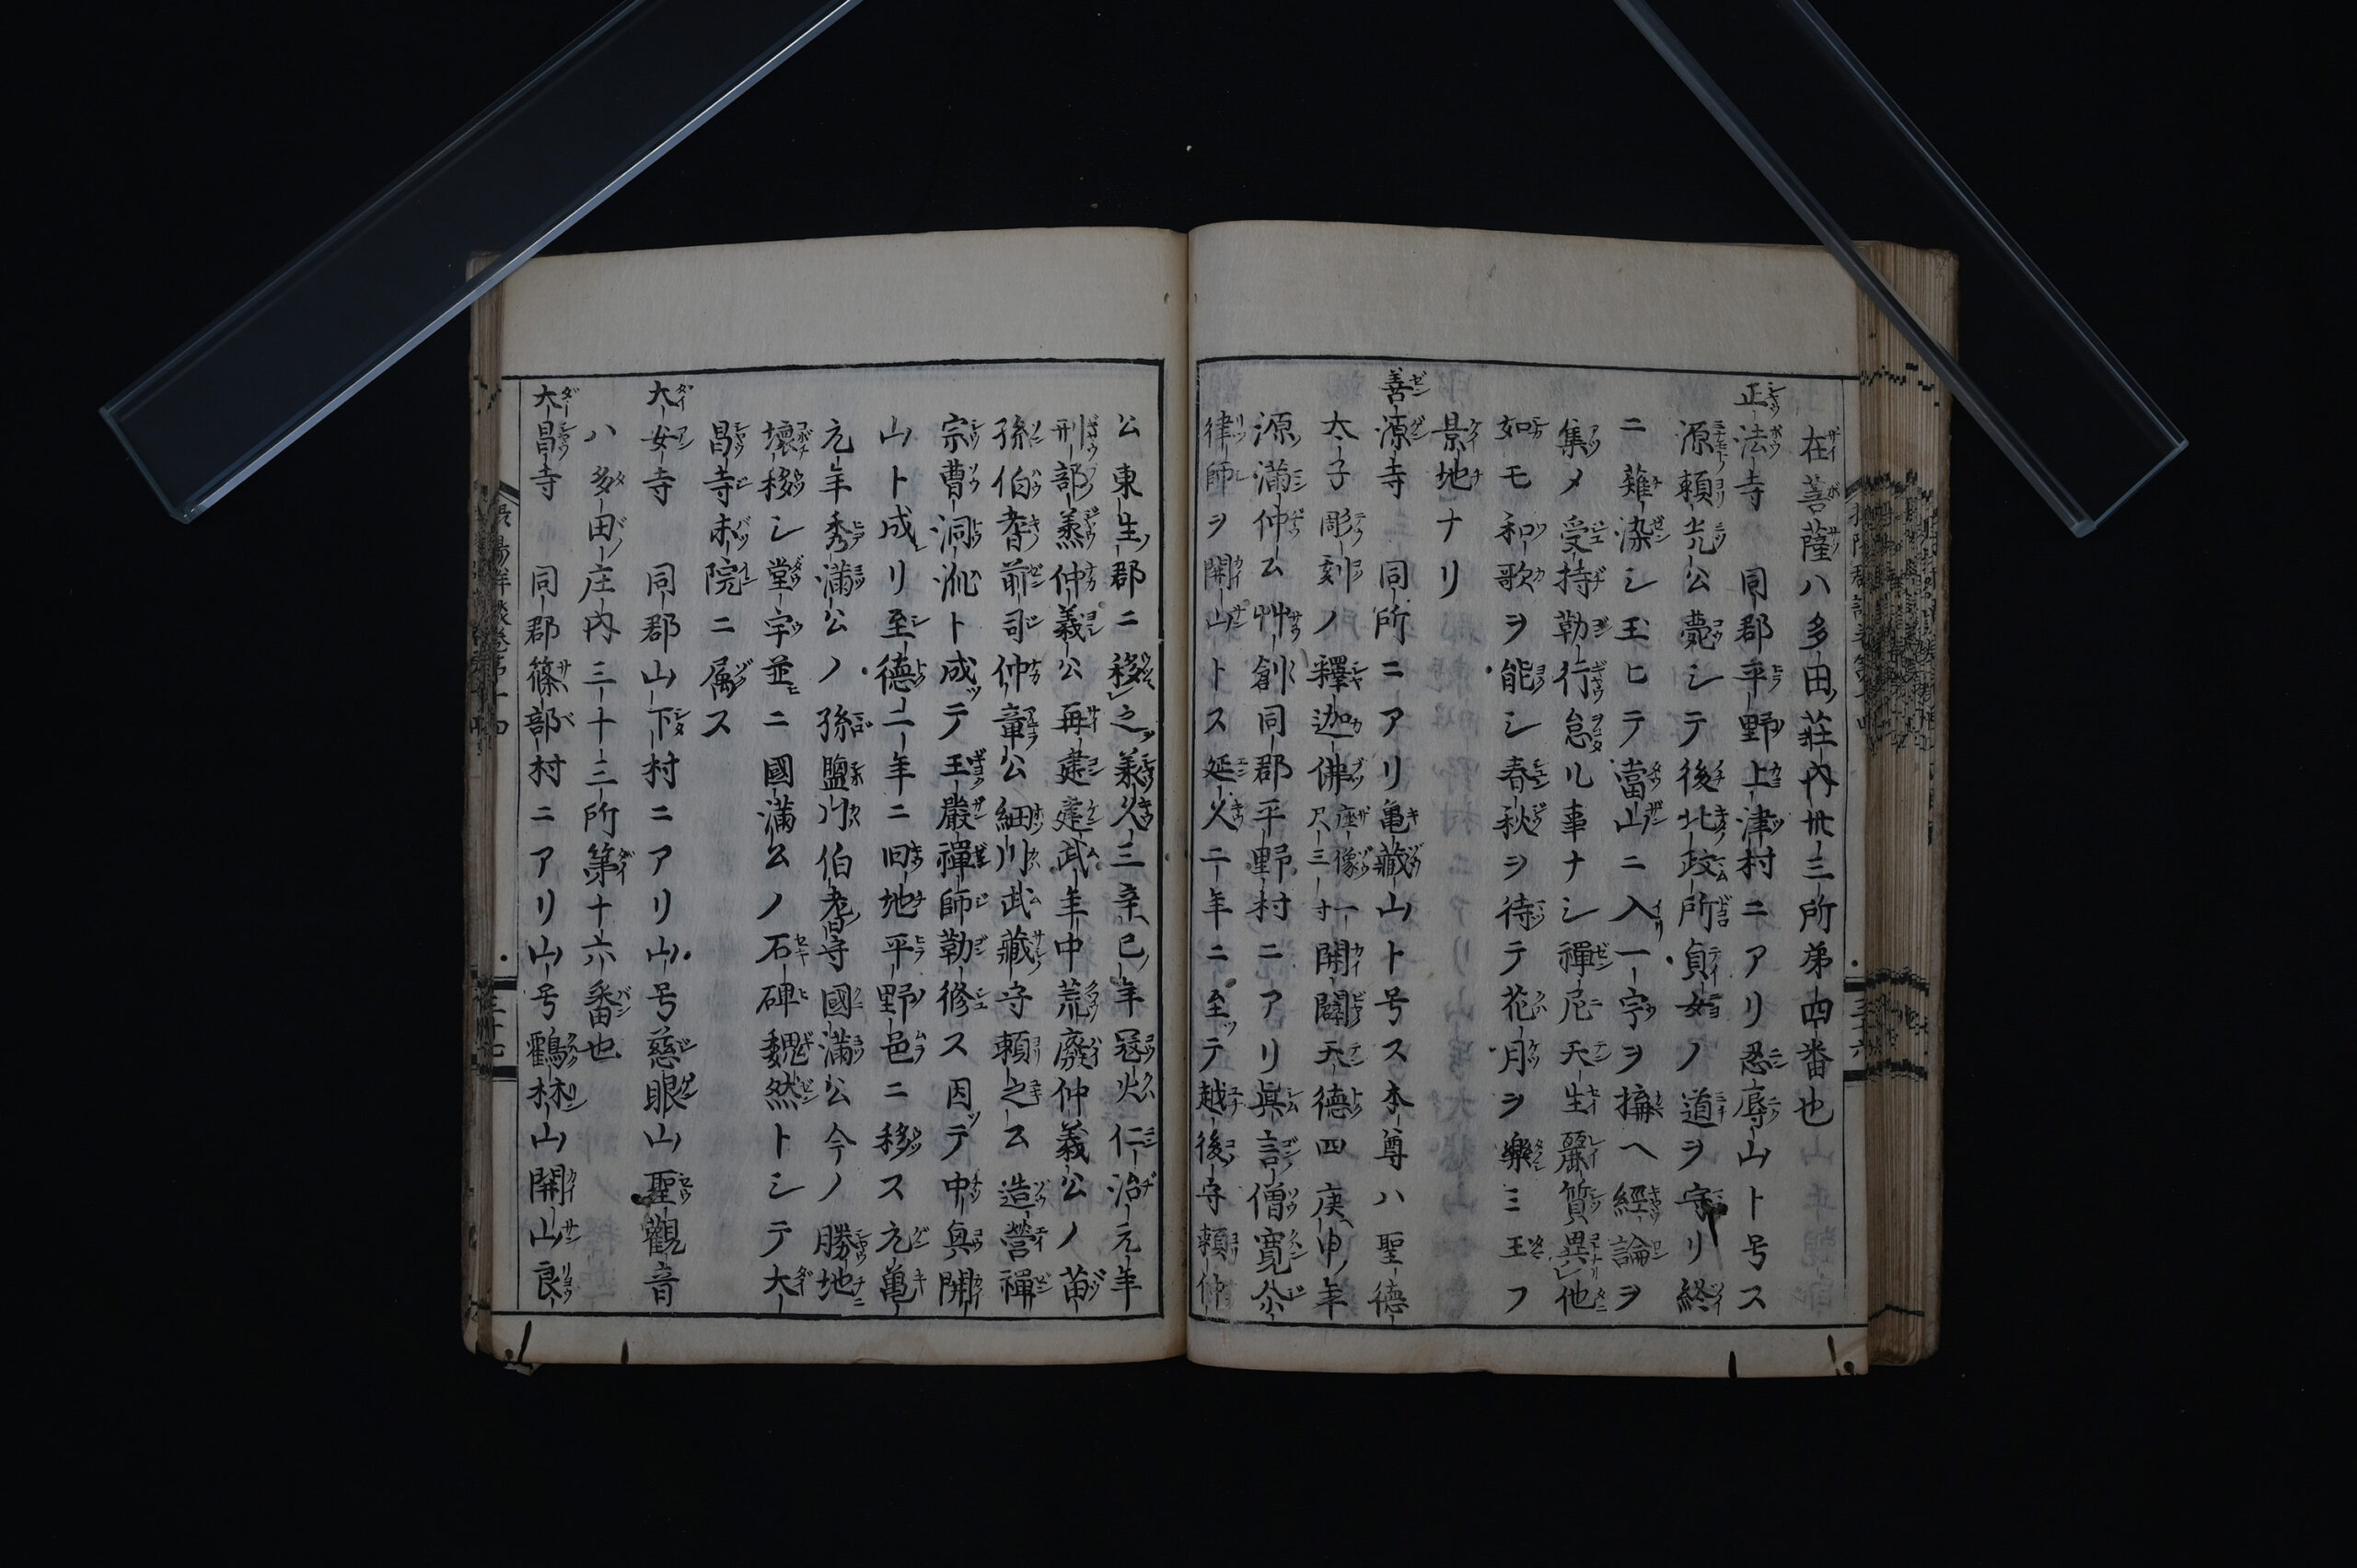 在菩薩ハ多田莊内卅三所弟四番也
正法寺 同郡平野上津村ニアリ忍辱山ト号ス
源頼光公薨シテ後北政所貞女ノ道ヲ守リ終
ニ薙染シ玉ヒテ當山ニ入一宇ヲ搆ヘ經論ヲ
集メ受持勒行怠ル事ナシ禪尼天生麗質異他
如モ和歌ヲ能シ春秋ヲ待テ花月ヲ樂ミ王フ
景地ナリ
善源寺 同所ニアリ亀藏山ト号ス本尊ハ聖徳
太子彫刻ノ釋迦佛座像一尺三寸開闢天徳四庚申年
源滿仲公艸創同郡平野村ニアリ眞言僧寛公
律師ヲ開山トス延火二年ニ至テ越後守頼仲
公東生郡ニ移之兼火三辛巳年冦火仁治元年
刑部蒸仲義公再建建武年中荒廢仲義公ノ苗
孫伯耆前司仲章公細川武藏守頼之公造營禪
宗曹洞派ト成テ玉嚴禪師勒修ス因テ中興開
山ト成リ至德二年ニ旧地平野邑ニ移ス元亀
元年秀滿公ノ孫鹽川伯耆守國滿公今ノ勝地
壞移シ堂宇並ニ國滿公ノ石碑巍然トシテ大
昌寺末院ニ属ス
大安寺 同郡山下村ニアリ山号慈眼山聖觀音
ハ多田庄内三十三所第十六番也
大昌寺 同郡篠部村ニアリ山号鶴林山開山良